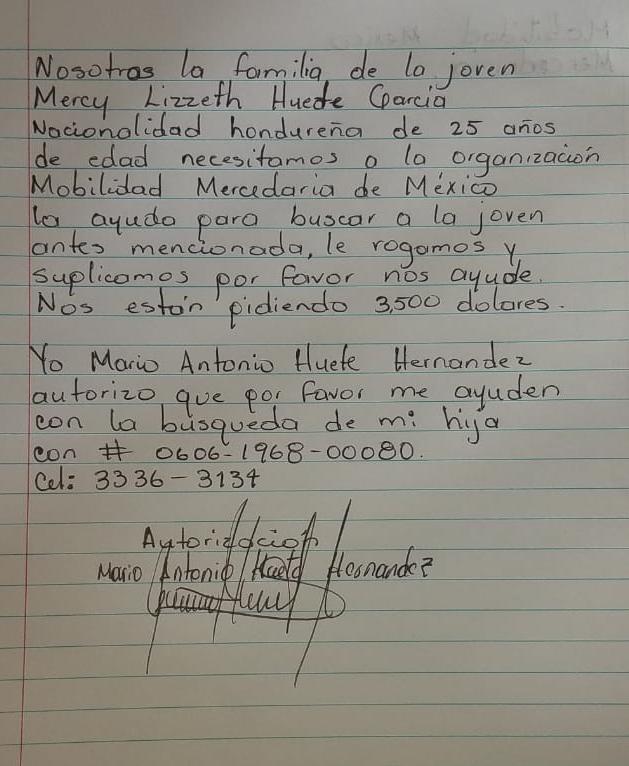 Nosotros la familia de la joven
Mercy Lizzeth Huete Garcia
Nacionalidad hondureña de 25 años
de edad necesitamos a la organización
Mobilidad Mercedaria de México
la ayuda para buscar a la joven
antes mencionada, le rogamos y
suplicamos por favor nos ayude.
Nos están pidiendo 3,500 dolares.
Yo Mario Antonio Huete Hernandez
autorizo que por favor me ayuden
con la búsqueda de mi hija
con # 0606-1968-00080.
Cel: 3336-3134
Autorización
Mario Antonio Huete Hernandez